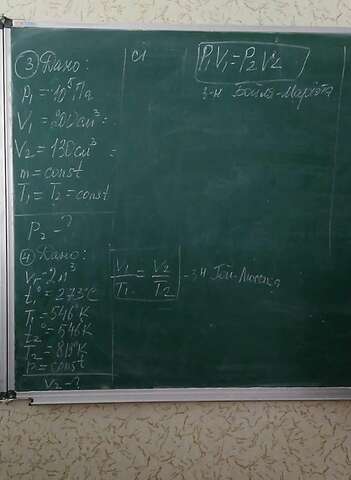 ③ Дано:
P₁ = 10⁵ Па
V₁ = 200 см³ =
V₂ = 130 см³ =
m = const
T₁ = T₂ = const
P₂ - ?
СІ
P₁V₁ = P₂V₂
з-н Бойля-Маріота
④ Дано:
V₁ = 2 м³
t₁° = 273°C
T₁ = 546°K
t₂° = 546°K
T₂ = 819°K
p = const
V₂ - ?
V₁/T₁ = V₂/T₂ - з-н Гей-Люссака